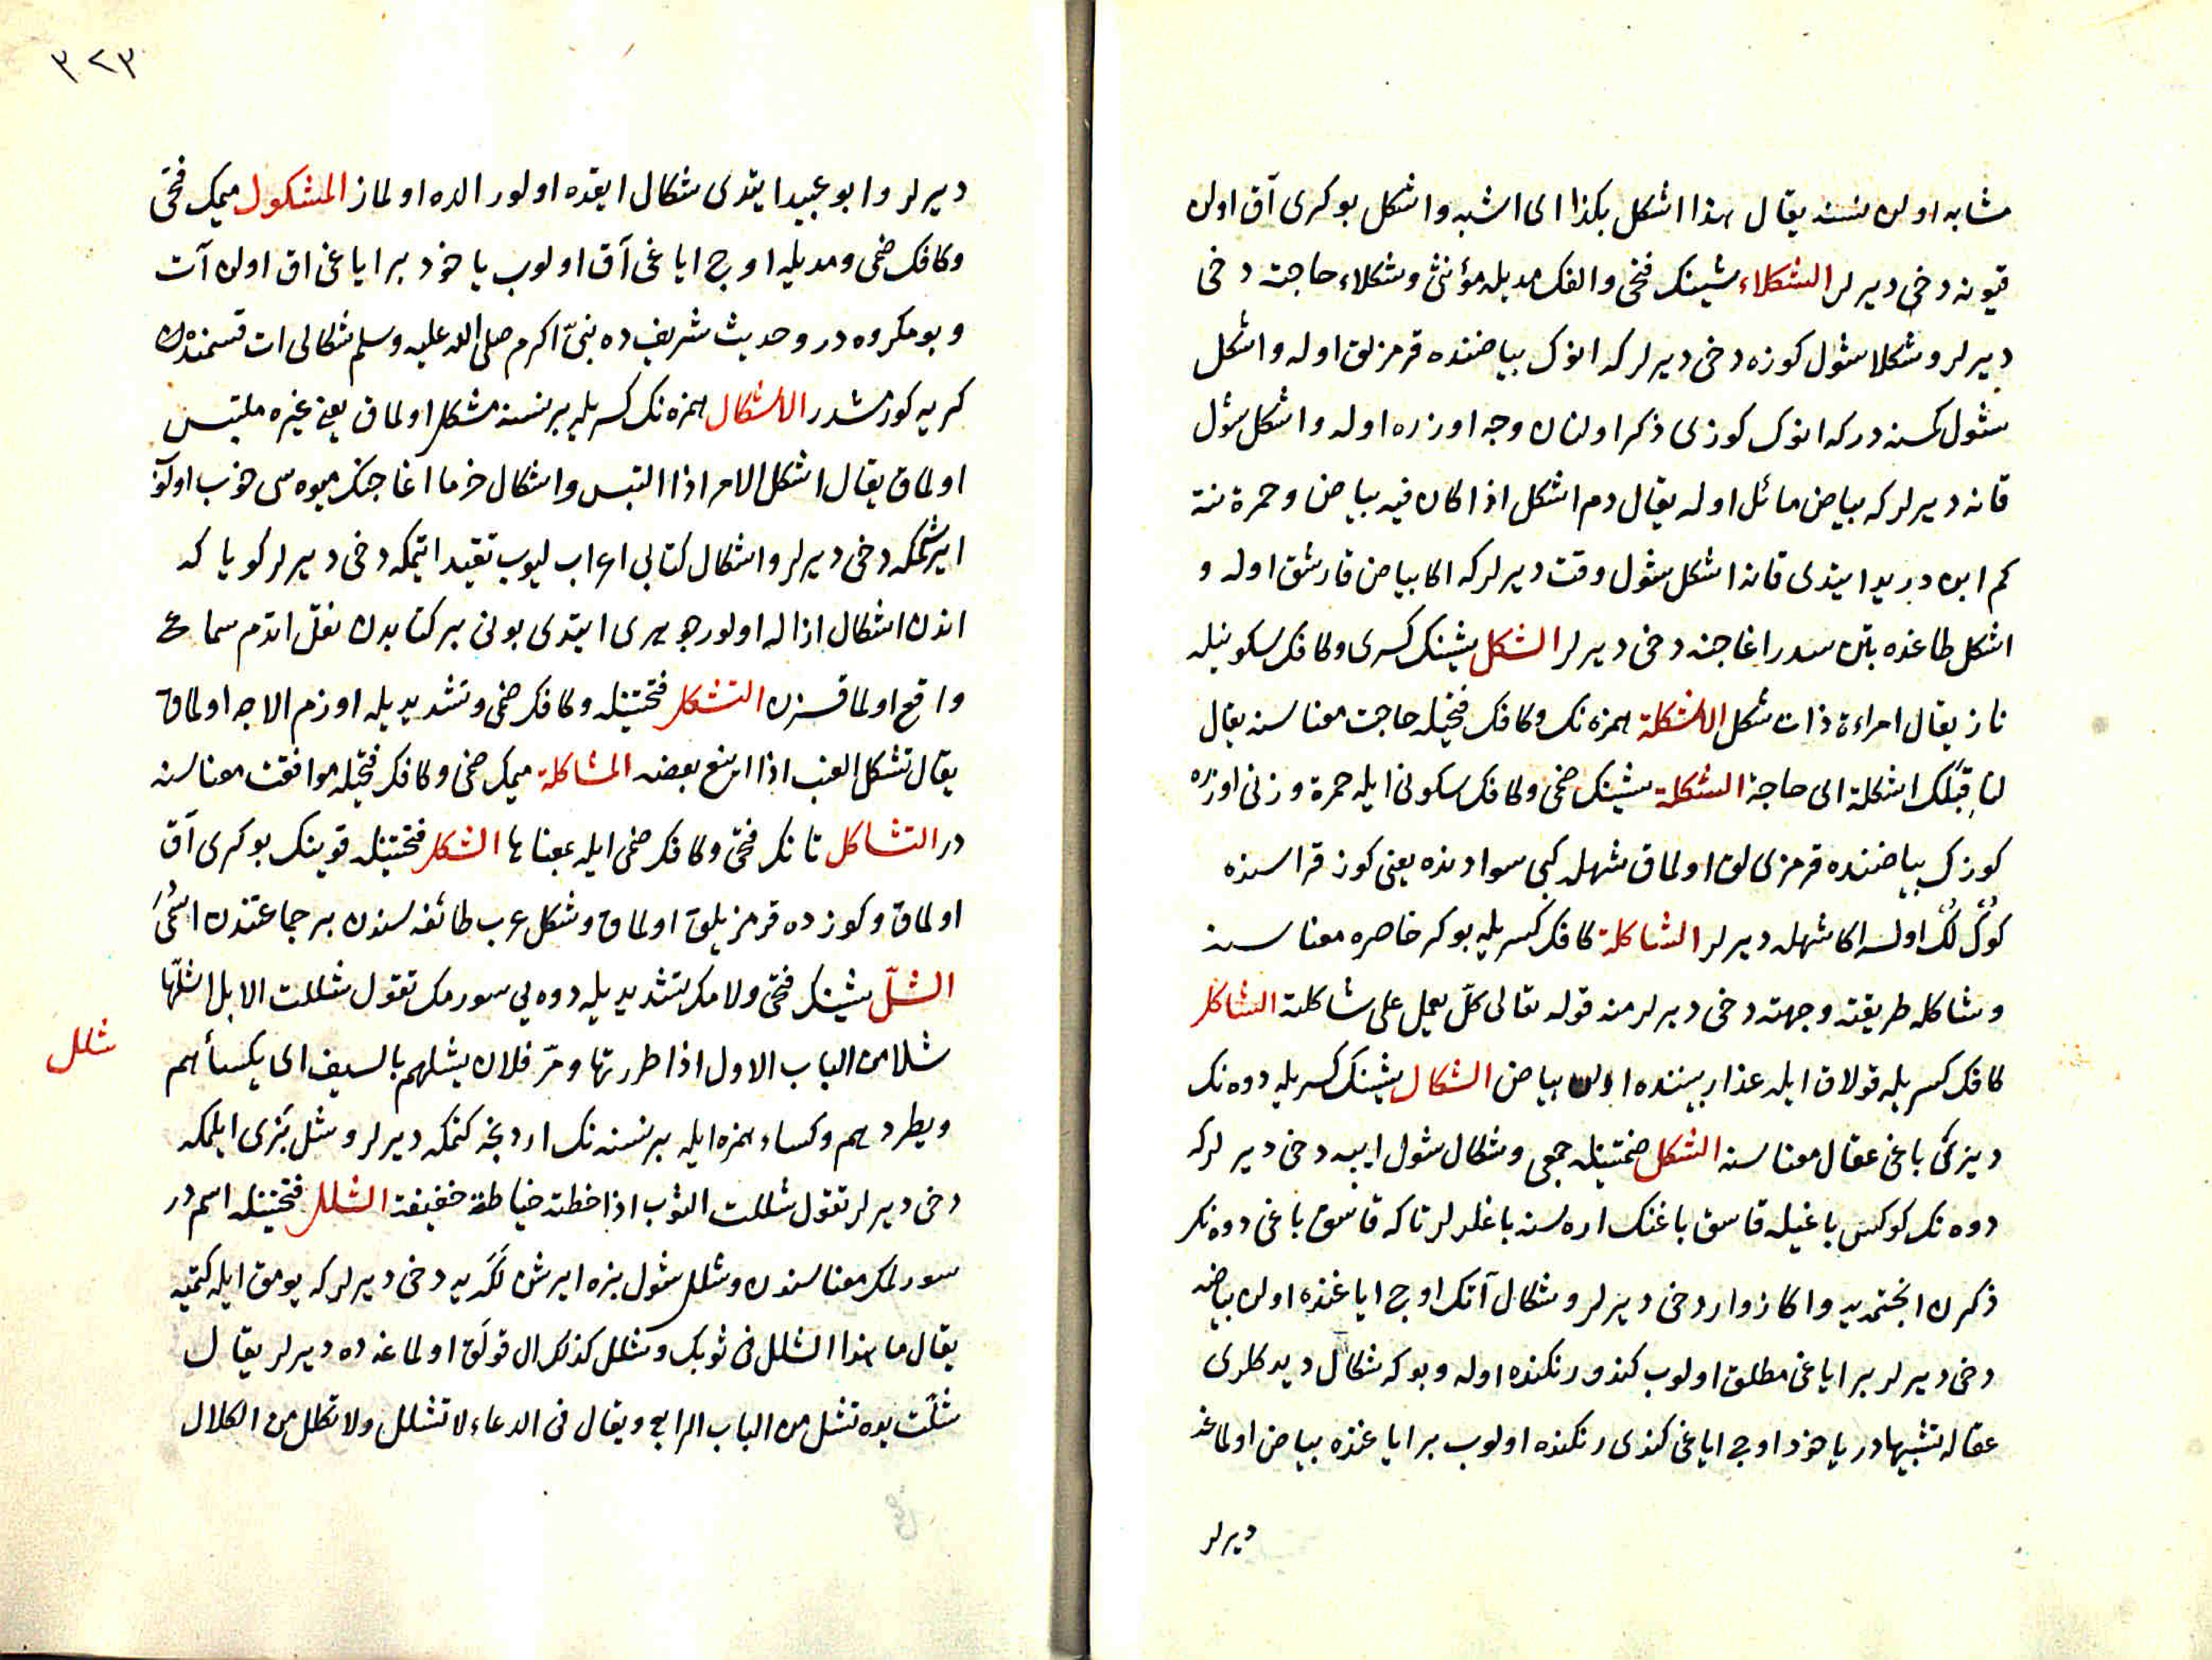 مشابه اولان نسنه يقال هذا اشكل بكذا اى اشبه واشكل بوكرى آق اولان
قيونه دخى ديرلر الشكلاء شينك فتحى والفك مديله مؤنثى وشكلاء حاجته دخى
ديرلر وشكلا شول كوزه دخى ديرلر كه انوك بياضنده قرمزلق اوله واشكل
شول كمسنه دركه انوك كوزى ذكر اولنان وجه اوزره اوله واشكل شول
قانه ديرلر كه بياض مائل اوله يقال دم اشكل اذا كان فيه بياض وحمرة نته
كم ابن دريد ايتدى قانه اشكل شول وقت ديرلر كه اكا بياض قارشق اوله و
اشكل طاغده بتن سدر اغاجنه دخى ديرلر الشكل شينك كسرى وكافك سكونيله
ناز يقال امراءة ذات شكل الاشكلة همزه نك وكافك فتحيله حاجت معناسنه يقال
لنا قبلك اشكلة اى حاجة الشكلة شينك ضمى وكافك سكونى ايله حمرة وزنى اوزره
كوزك بياضنده قرمزى لق اولماق شهله كبى سوادنده يعنى كوز قراسنده
كوك لك اولسه اكا شهله ديرلر الشاكلة كافك كسريله بوكر خاصره معناسنه
وشاكله طريقته وجهته دخى ديرلر منه قوله تعالى كل يعمل على شاكلته الشاكل
كافك كسريله قولاق ايله عذار بيننده اولان بياض الشكال شينك كسريله دوه نك
ديزكى باغى عقال معناسنه الشكل ضمتينله جمعى وشكال شول ايپه دخى ديرلركه
دوه نك كوكس باغيله قاسق باغنك اره سنه باغلرلر تاكه قاسق باغى دوه نك
ذكرن انجتميه واكا زوار دخى ديرلر وشكال آتك اوچ اياغنده اولان بياضه
دخى ديرلر بر اياغى مطلق اولوب كندو رنكنده اوله وبوكه شكال ديدكلرى
عقاله تشبيهادر ياخود اوچ اياغى كندى رنكنده اولوب بر اياغنده بياض اولماغه
ديرلر
٣٢٣
ديرلر وابو عبيد ايتدى شكال ايقده اولور الده اولماز المشكول ميمك فتحى
وكافك ضمى ومديله اوچ اياغى آق اولوب ياخود بر اياغى اق اولان آت
وبو مكروه در وحديث شريفده نبىّ اكرم صلى الله عليه وسلم شكالى ات قسمنده
كريه كورمشدر الاشكال همزه نك كسريله بر نسنه مشكل اولماق يعنى غيره ملتبس
اولماق يقال اشكل الامر اذا التبس واشكال خرما اغاجنك ميوه سى خوب اولوب
ايرشمكه دخى ديرلر واشكال كتابى اعراب ليوب تقييد ايتمكه دخى ديرلر كويا كه
اندن اشكال ازاله اولور جوهرى ايتدى بونى بر كتابدن نقل اتدم سماع
واقع اولماقسزن التشكل فتحتينله وكافك ضمى وتشديديله اوزم الاجه اولماق
يقال تشكل العنب اذا اينع بعضه المشاكلة ميمك ضمى وكافك فتحيله موافقت معناسنه
در التشاكل تانك فتحى وكافك ضمى ايله بمعناها الشكل فتحتينله قوينك بوكرى آق
اولماق وكوزده قرمزيلق اولماق وشكل عرب طائفه سندن بر جماعتدن اسمى
الشلّ شينك فتحى ولامك تشديديله دوه يى سورمك تقول شللت الابل اشلّها
شلا من الباب الاول اذا طردتها ومرّ فلان يشلهم بالسيف اى يكسأهم
شلل
ويطردهم وكساء همزه ايله بر نسنه نك اردنجه كتمكه ديرلر وشل بزى ايلمكه
دخى ديرلر تقول شللت الثوب اذا خطته خياطة خفيفة الشلل فتحتينله اسم در
سورلمك معناسندن وشلل شول بزه ايرشن لكه يه دخى ديرلر كه يومق ايله كتميه
يقال ما هذا الشلل فى ثوبك وشلل كذلك ال قولق اولماغه ده ديرلر يقال
شلّت يده تشل من الباب الرابع ويقال فى الدعاء لا تشلل ولا تكلل من الكلال